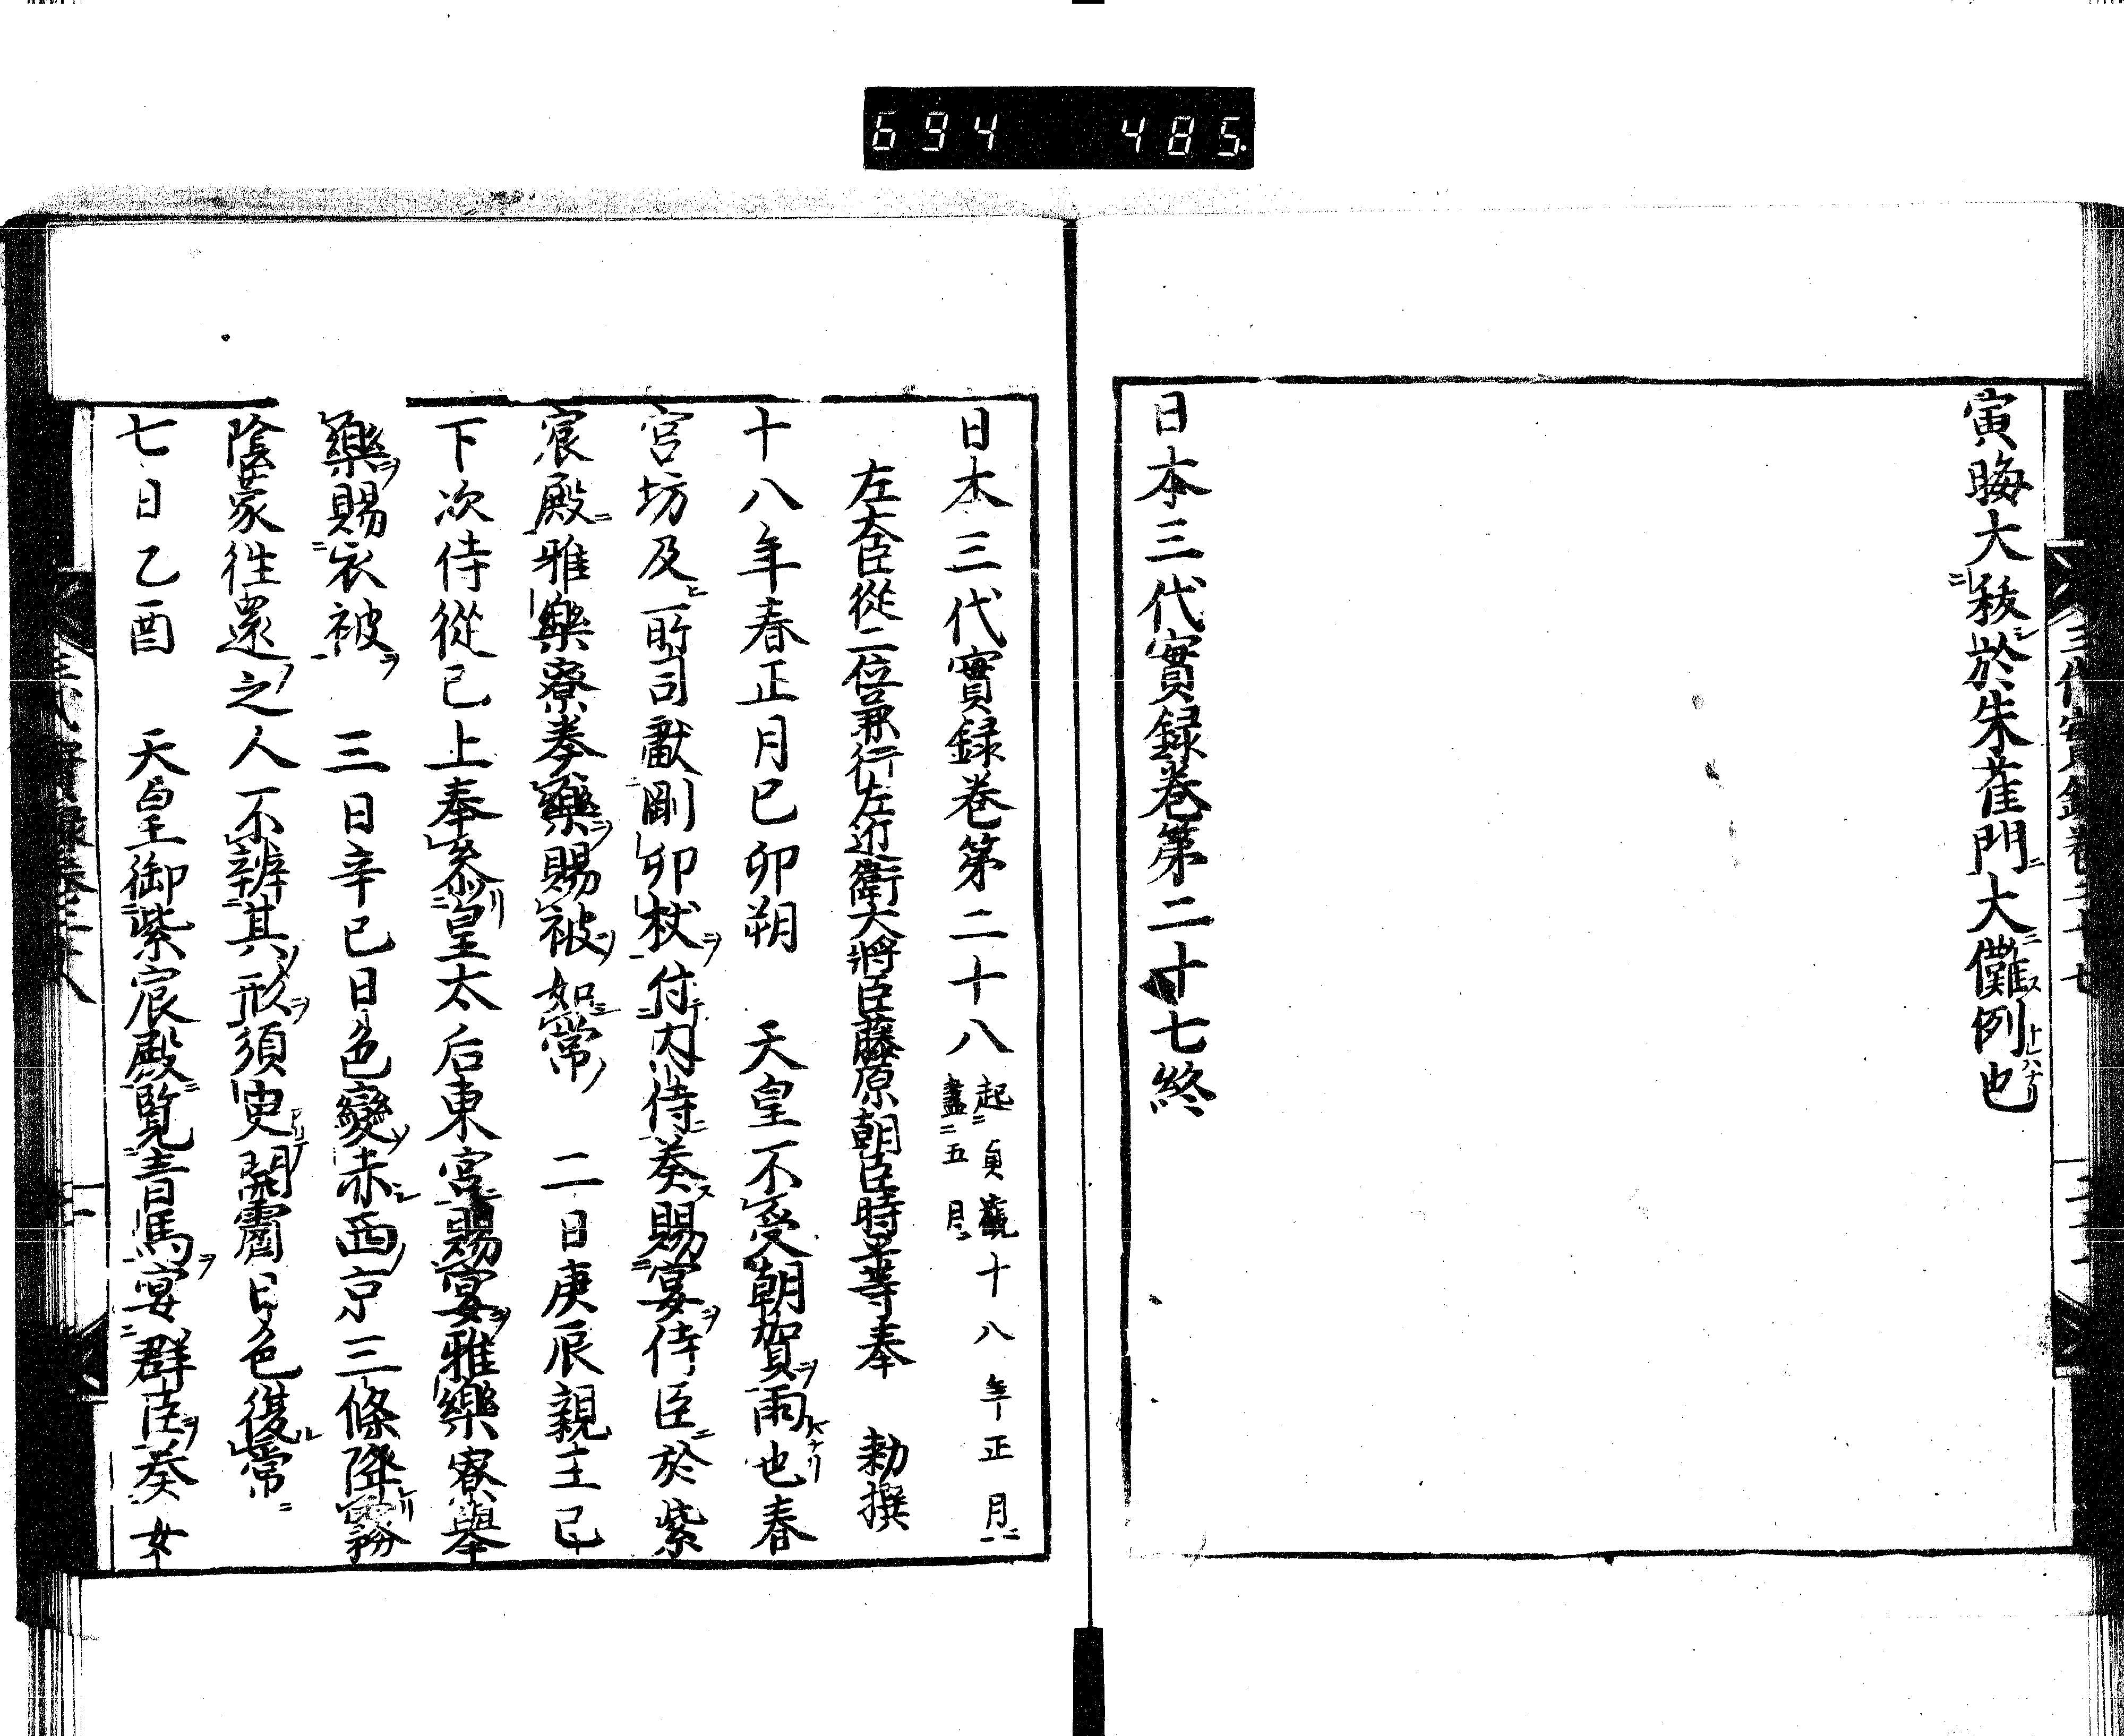 694 485.
寅晦大秡於朱雀門大儺例也
日本三代實録卷第二十七終
日本三代實録卷第二十八 起貞觀十八年正月盡五月
左大臣從二位兼行左近衛大將臣藤原朝臣時平等奉 勅撰
十八年春正月己卯朔 天皇不受朝賀雨也春
宮坊及所司獻剛卯杖付内侍奏賜宴侍臣於紫
宸殿雅樂寮奏樂賜被如常 二日庚辰親王已
下次侍從已上奉参皇太后東宮賜宴雅樂寮舉
樂賜衣被 三日辛巳日色變赤西京三條降霧
陰蒙往還之人不辨其形須臾開霽日色復常
七日乙酉 天皇御紫宸殿覧青馬宴群臣奏女